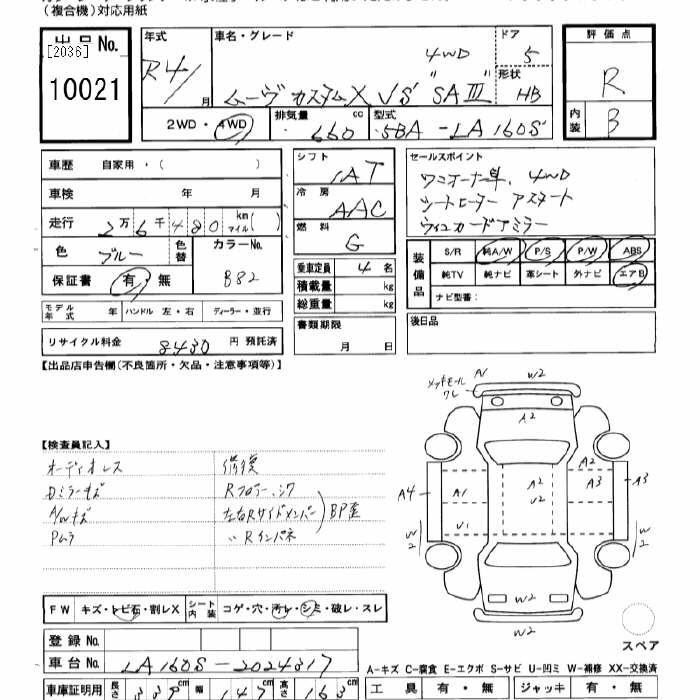 (複合機)対応用紙
出品No.
[2036]
10021
年式
R4/
月
車名・グレード
4WD
ムーヴ カスタムX VS "SAⅢ"
ドア
5
形状
HB
評価点
R
内装
B
2WD・4WD
排気量
660
cc
型式
5BA-LA160S
車歴 自家用・( )
車検 年 月
走行 2万6千480km マイル( )
色 ブルー
色替
カラーNo.
B82
保証書 有・無
シフト
IAT
冷房
AAC
燃料
G
乗車定員 4 名
積載量 kg
総重量 kg
書類期限
月 日
セールスポイント
ワンオーナー車、4WD
シートヒーター アスタート
ウィンカードアミラー
装備品
S/R 純A/W P/S P/W ABS
純TV 純ナビ 革シート 外ナビ エアB
ナビ型番:
後日品
モデル年式 年 ハンドル 左・右 ディーラー・並行
リサイクル料金 8430 円 預託済
【出品店申告欄(不良箇所・欠品・注意事項等)】
【検査員記入】
オーディオレス
Dミラーキズ
A/Wキズ
Pムラ
修復
Rフロアー、シワ
左右Rサイドメンバー
〃Rインパネ
BP歪
メッキモール
ワレ
A1 W2
A2
A2
U2
A1
U1
A2
A3
A3
A4
W2
W2
W2
W2
FW キズ・トビ石・割レX シート内装 コゲ・穴・汚レ・シミ・破レ・スレ
登録No.
車台No. LA160S-2024317
車庫証明用 長さ 339cm 幅 147cm 高さ 163cm
スペア
A-キズ C-腐食 E-エクボ S-サビ U-凹ミ W-補修 XX-交換済
工具 有・無 ジャッキ 有・無